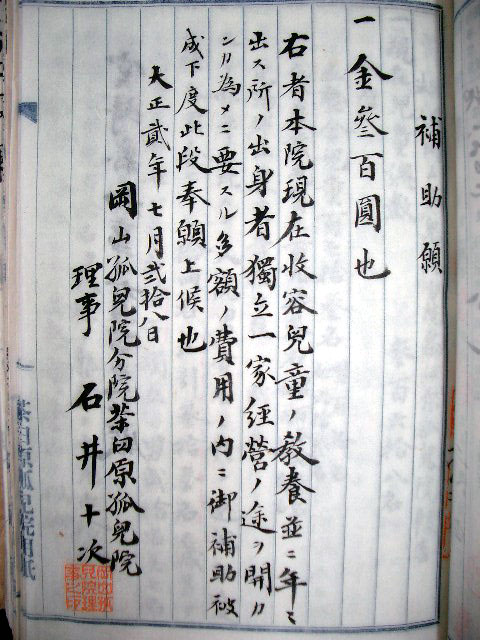 補助願
一金參百圓也
右者本院現在收容兒童ノ教養並ニ年々
出ス所ノ出身者獨立一家経營ノ途ヲ開カ
ンカ為メニ要スル多額ノ費用ノ内ニ御補助被
成下度此段奉願上候也
大正貳年七月貳拾八日
岡山孤兒院分院茶臼原孤兒院
理事 石井十次
茶臼原孤兒院用紙